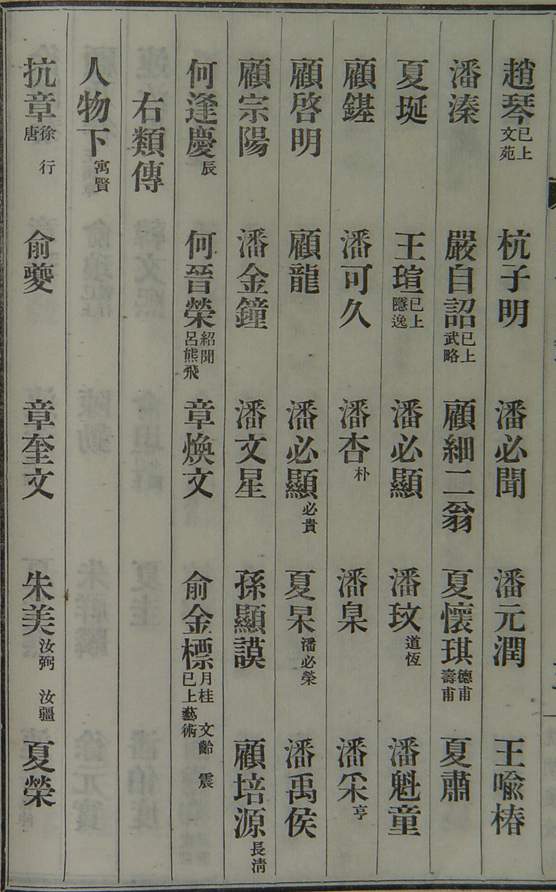 趙琴已上文苑 杭子明 潘必聞 潘元潤 王喩椿
潘溱 嚴自詔已上武略 顧細二翁 夏懷琪德甫壽甫 夏肅
夏埏 王瑄已上隱逸 潘必顯 潘玟道恆 潘魁童
顧鎈 潘可久 潘杏朴 潘臯 潘采亨
顧啓明 顧龍 潘必顯必貴 夏杲潘必榮 潘禹侯
顧宗陽 潘金鐘 潘文星 孫顯謨 顧培源長淸
何逢慶辰 何晉榮紹聞呂熊飛 章煥文 俞金標月桂文齡震已上藝術
右類傳
人物下寓賢
抗章徐行唐 俞夔 章奎文 朱美汝弼汝疆 夏榮